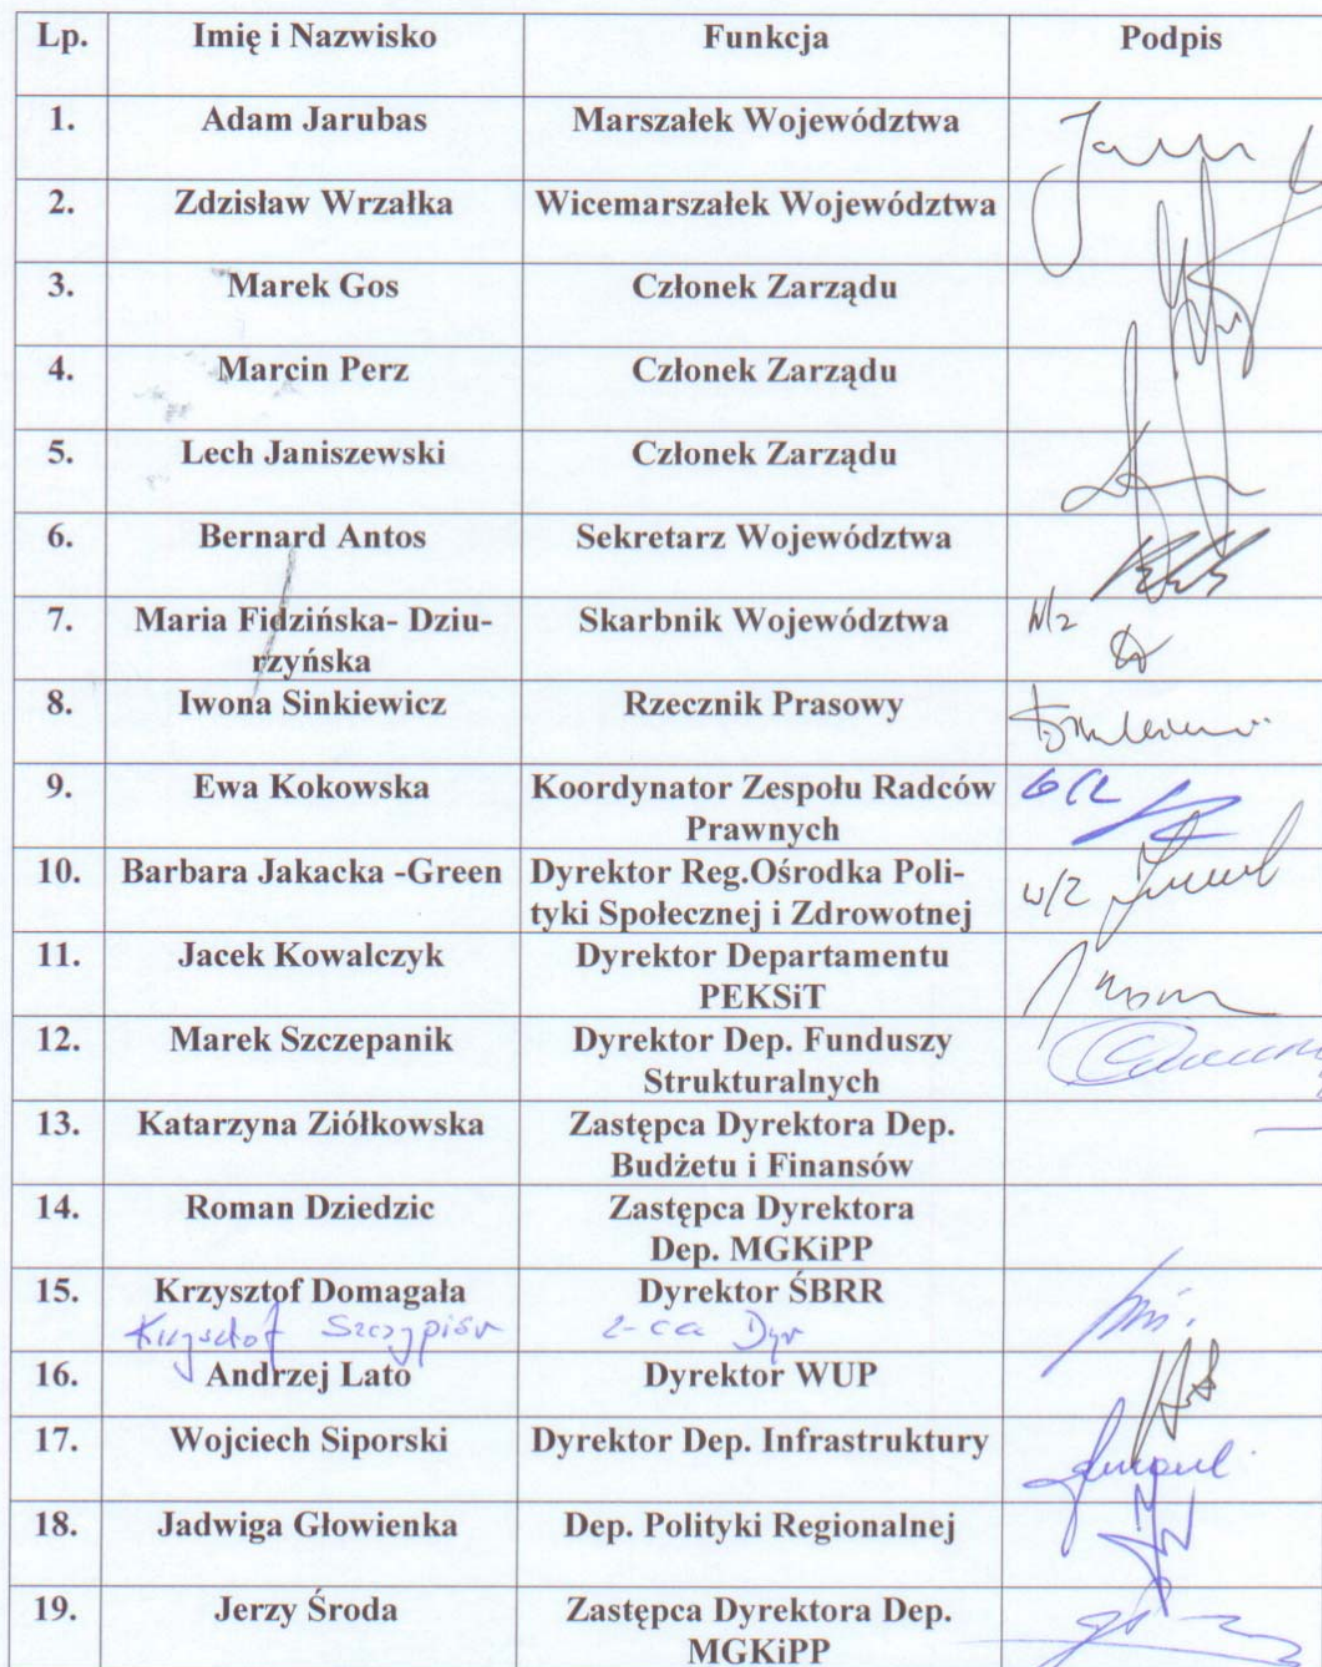 Lp. Imię i Nazwisko Funkcja Podpis
1. Adam Jarubas Marszałek Województwa
2. Zdzisław Wrzałka Wicemarszałek Województwa
3. Marek Gos Członek Zarządu
4. Marcin Perz Członek Zarządu
5. Lech Janiszewski Członek Zarządu
6. Bernard Antos Sekretarz Województwa
7. Maria Fidzińska- Dziu- Skarbnik Województwa W/z
rzyńska
8. Iwona Sinkiewicz Rzecznik Prasowy
9. Ewa Kokowska Koordynator Zespołu Radców
Prawnych
10. Barbara Jakacka -Green Dyrektor Reg.Ośrodka Poli- w/z
tyki Społecznej i Zdrowotnej
11. Jacek Kowalczyk Dyrektor Departamentu
PEKSiT
12. Marek Szczepanik Dyrektor Dep. Funduszy
Strukturalnych
13. Katarzyna Ziółkowska Zastępca Dyrektora Dep.
Budżetu i Finansów
14. Roman Dziedzic Zastępca Dyrektora
Dep. MGKiPP
15. Krzysztof Domagała Dyrektor ŚBRR
Krzysztof Z-ca Dyr
16. Andrzej Lato Dyrektor WUP
17. Wojciech Siporski Dyrektor Dep. Infrastruktury
18. Jadwiga Głowienka Dep. Polityki Regionalnej
19. Jerzy Środa Zastępca Dyrektora Dep.
MGKiPP